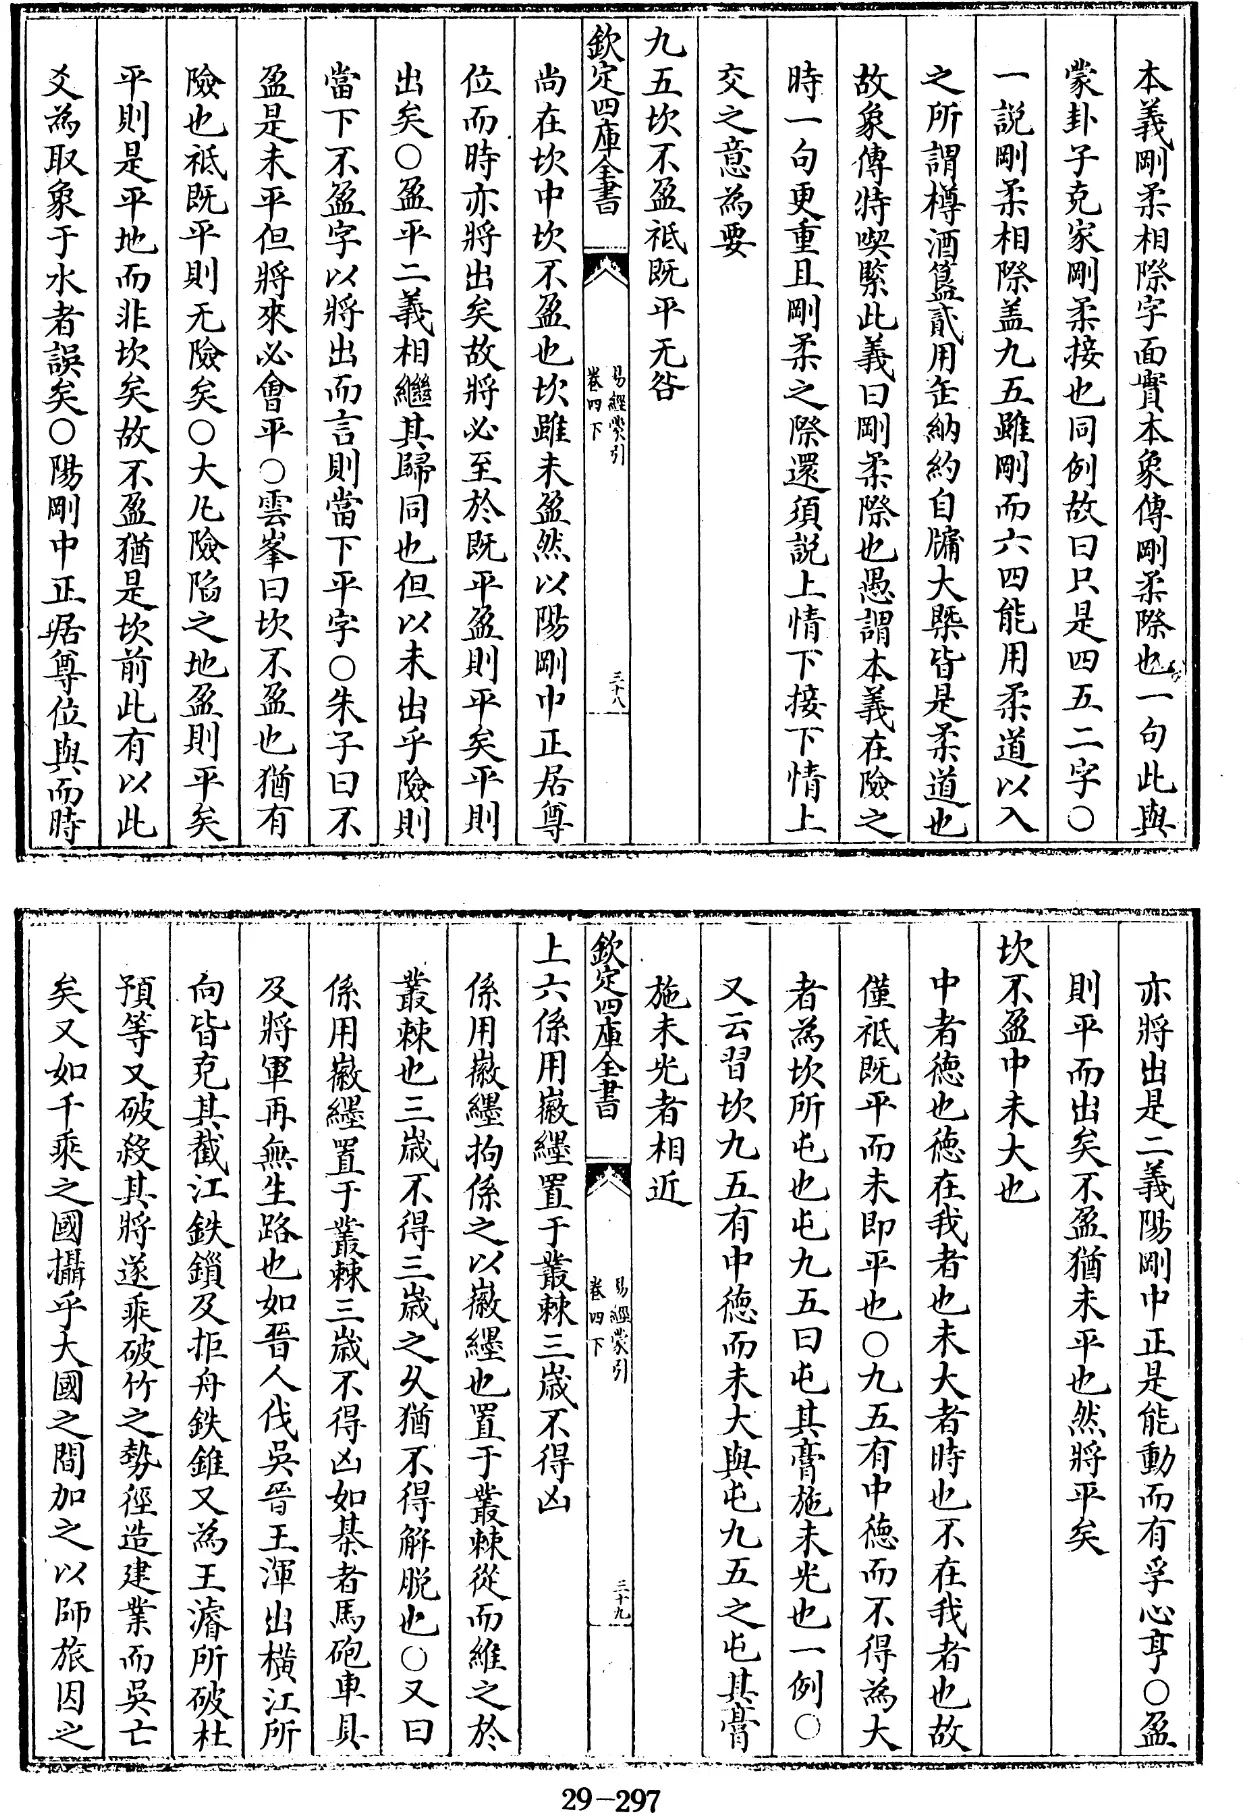 本義剛柔相際字面實本象傳剛柔際也一句此與
蒙卦子克家剛柔接也同例故曰只是四五二字○
一説剛柔相際盖九五雖剛而六四能用柔道以入
之所謂樽酒簋貳用缶納約自牖大槩皆是柔道也
故象傳特喫緊此義曰剛柔際也愚謂本義在險之
時一句更重且剛柔之際還須説上情下接下情上
交之意為要
九五坎不盈祗既平无咎
欽定四庫全書
易經蒙引
卷四下
三十八
尚在坎中坎不盈也坎雖未盈然以陽剛中正居尊
位而時亦將出矣故將必至於既平盈則平矣平則
出矣○盈平二義相繼其歸同也但以未出乎險則
當下不盈字以將出而言則當下平字○朱子曰不
盈是未平但將來必會平○雲峯曰坎不盈也猶有
險也祗既平則无險矣○大凡險陷之地盈則平矣
平則是平地而非坎矣故不盈猶是坎前此有以此
爻為取象于水者誤矣○陽剛中正居尊位與而時
亦將出是二義陽剛中正是能動而有孚心亨○盈
則平而出矣不盈猶未平也然將平矣
坎不盈中未大也
中者德也德在我者也未大者時也不在我者也故
僅祗既平而未即平也○九五有中德而不得為大
者為坎所屯也屯九五曰屯其膏施未光也一例○
又云習坎九五有中德而未大與屯九五之屯其膏
施未光者相近
欽定四庫全書
易經蒙引
卷四下
三十九
上六係用徽纆置于叢棘三歲不得凶
係用徽纆拘係之以徽纆也置于叢棘從而維之於
叢棘也三歲不得三歲之久猶不得解脱也○又曰
係用徽纆置于叢棘三歲不得凶如棊者馬砲車具
及將軍再無生路也如晉人伐吳晉王渾出横江所
向皆克其截江鉄鎖及拒舟鉄錐又為王濬所破杜
預等又破殺其將遂乘破竹之勢徑造建業而吳亡
矣又如千乘之國攝乎大國之間加之以師旅因之
29-297